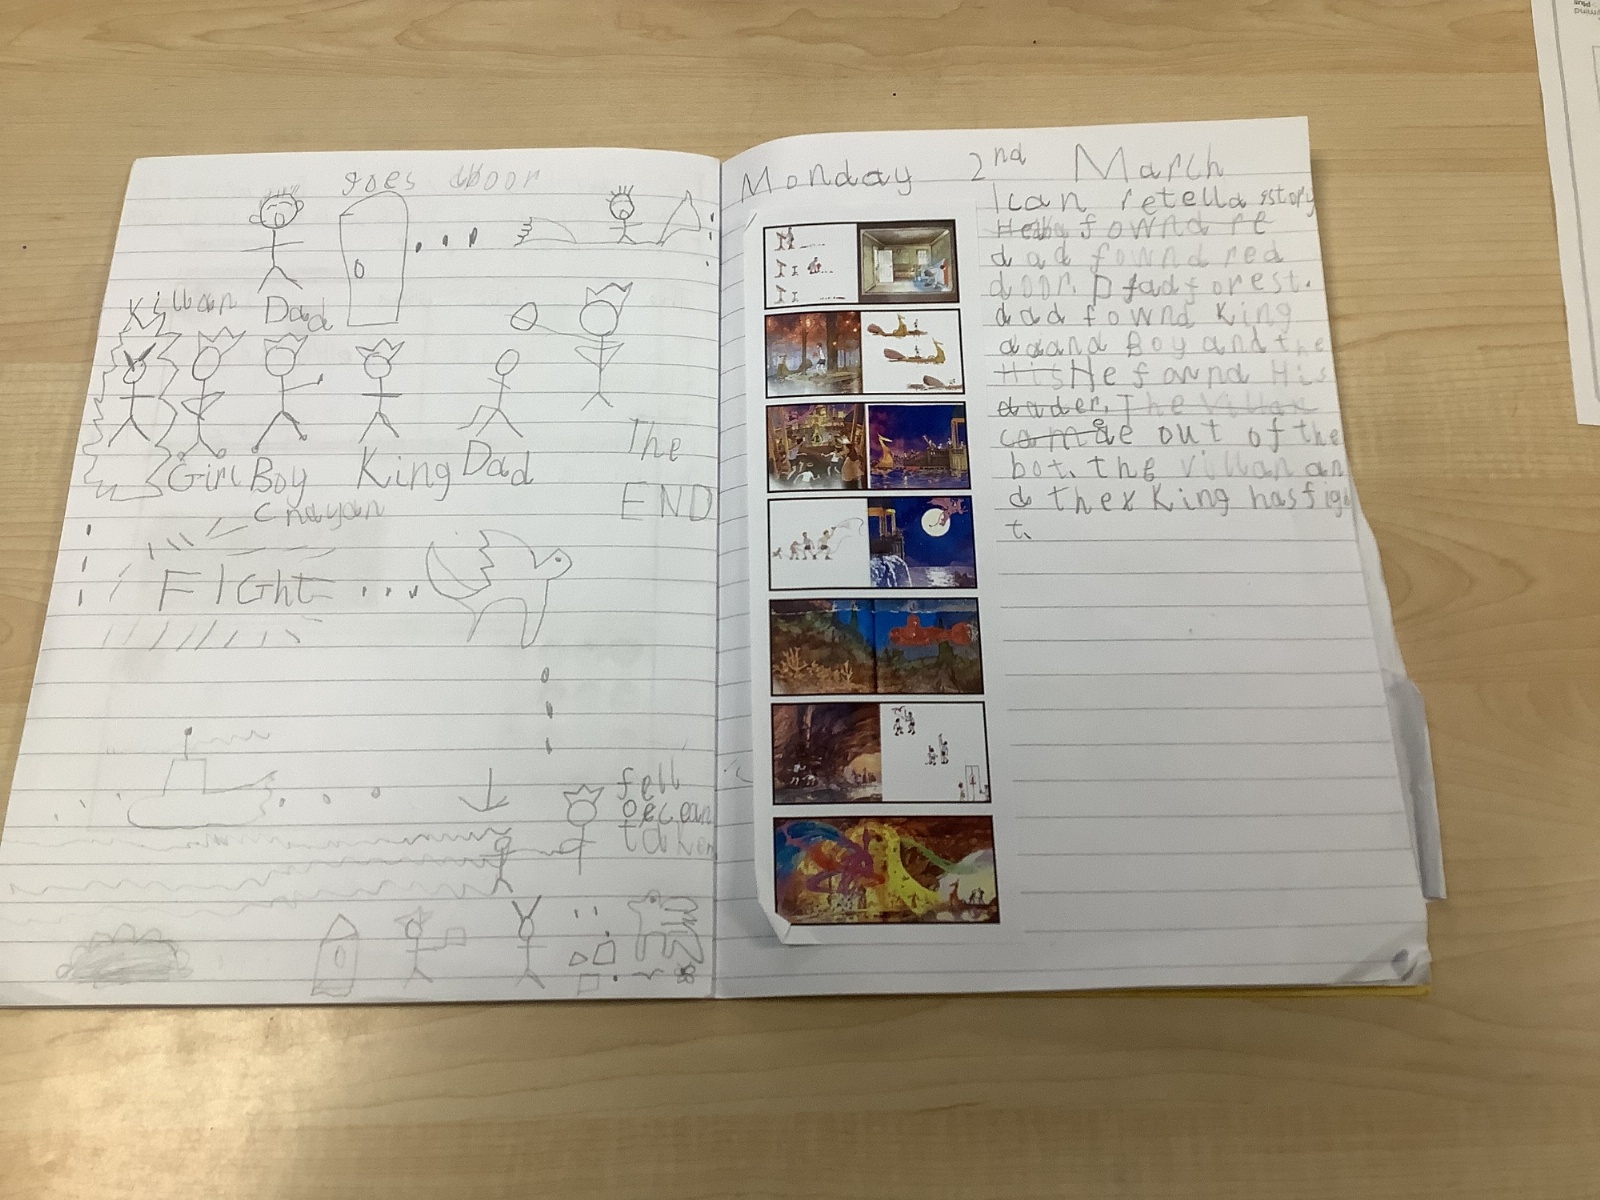 goes door
Killan Dad
Girl Boy King Dad
The
END
FIGht
fell
ocean
Monday 2nd March
I can retell a story
fownd re
dad fownd red
door. forest.
dad fownd King
and Boy and the
His He faund His
dader. The villan
come out of the
bot. the villan an
d the King has figh
t.